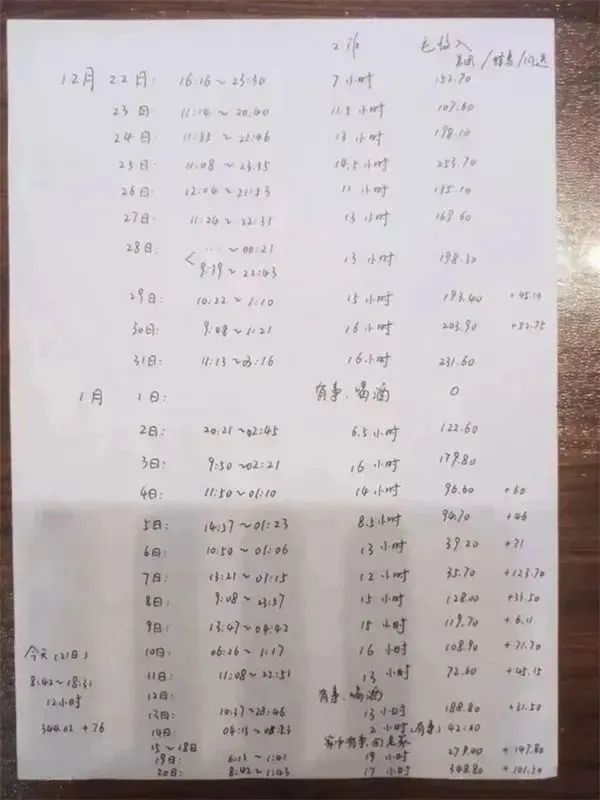 工作 毛收入
美团/蜂鸟/闪送
12月 22日: 16:16~23:30 7小时 152.70
23日: 11:14~20:40 11.5小时 107.60
24日: 11:55~22:46 13小时 198.10
25日: 11:08~23:35 14.5小时 253.70
26日: 12:04~21:53 11小时 135.10
27日: 11:24~22:31 13小时 169.60
28日: < ...~00:21
9:39~22:43 13小时 198.30
29日: 10:22~1:10 15小时 193.40 +45.10
30日: 9:48~1:21 16小时 203.90 +52.75
31日: 11:13~03:16 16小时 231.60
1月 1日: 有事、喝酒 0
2日: 20:21~02:45 6.5小时 122.60
3日: 9:50~02:21 16小时 179.80
4日: 11:50~01:10 14小时 96.60 +60
5日: 14:57~01:23 8.5小时 94.70 +46
6日: 10:50~01:06 13小时 39.20 +71
7日: 13:21~01:15 12小时 35.70 +123.70
8日: 9:08~23:57 15小时 128.00 +33.50
9日: 13:47~04:42 15小时 119.70 +6.11
10日: 06:26~1:17 16小时 108.90 +71.70
11日: 11:08~22:51 13小时 72.60 +45.15
12日: 有事、喝酒
13日: 10:37~23:46 13小时 188.80 +31.50
14日: 04:13~08:23 2小时(有事) 42.00
15~18日 家中有事,回老家
19日: 6:13~1:41 19小时 279.00 +147.80
20日: 8:42~1:43 17小时 348.80 +101.50
今天(21日)
8:42~18:31
12小时
344.02+76